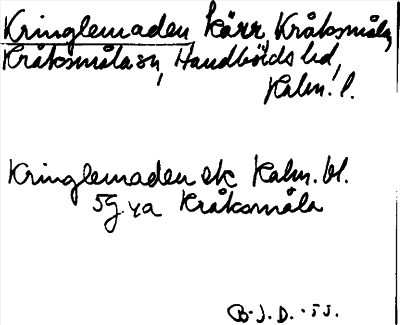 Kringlemaden kärr, Kråksmåla,
Kråksmåla sn, Handbörds hd,
Kalm. l.
Kringlemaden ek Kalm. bl.
5G ya Kråksmåla
B.J.D. -55.